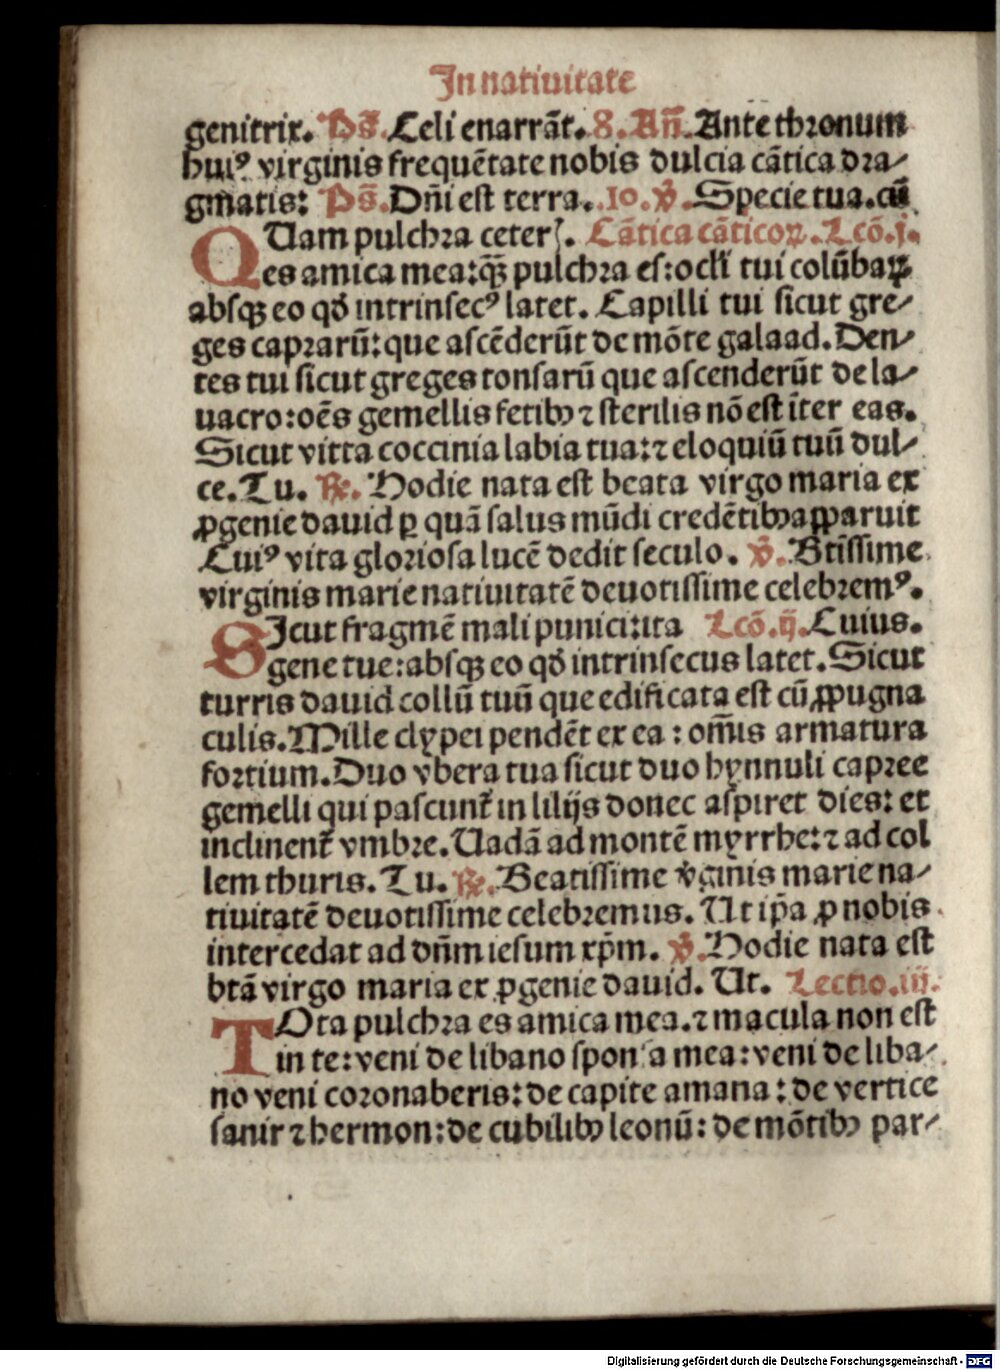 In natiuitate
genitrix. Ps̄. Celi enarrāt. 8. An̄. Ante thronum
huiꝰ virginis frequētate nobis dulcia cātica dra⸗
gmatis: Ps̄. Dn̄i est terra. 10. v̄. Specie tua. cū
QUam pulchra ceterꝭ. Cātica cāticoꝝ. Lcō. j.
es amica mea: qꝫ̄ pulchra es: ocĺi tui colūbaꝝ
absqꝫ eo qđ intrinsecꝰ latet. Capilli tui sicut gre⸗
ges caprarū: que ascēderūt de mōte galaad. Den⸗
tes tui sicut greges tonsarū que ascenderūt de la⸗
uacro: oēs gemellis fetibꝫ ⁊ sterilis nō est īter eas.
Sicut vitta coccinia labia tua: ⁊ eloquiū tuū dul⸗
ce. Tu. ℟. Hodie nata est beata virgo maria ex
ꝓgenie dauid ꝑ quā salus mūdi credētibꝫ apparuit
Cuiꝰ vita gloriosa lucē dedit seculo. v̄. Btīssime
virginis marie natiuitatē deuotissime celebremꝰ.
SIcut fragmē mali punici: ita Lcō. ij. Cuius.
gene tue: absqꝫ eo qđ intrinsecus latet. Sicut
turris dauid collū tuū que edificata est cū ꝓpugna
culis. Mille clypei pendēt ex ea: om̄is armatura
fortium. Duo vbera tua sicut duo hynnuli capree
gemelli qui pascunt᷑ in lilijs donec aspiret dies: et
inclinent᷑ vmbre. Uadā ad montē myrrhe: ⁊ ad col
lem thuris. Tu. ℟. Beatissime v̄ginis marie na⸗
tiuitatē deuotissime celebremus. Ut ip̄a ꝓ nobis
intercedat ad dn̄m iesum xp̄m. v̄. Hodie nata est
btā virgo maria ex ꝓgenie dauid. Ut. Lectio. iij.
TOta pulchra es amica mea. ⁊ macula non est
in te: veni de libano sponsa mea: veni de liba⸗
no veni coronaberis: de capite amana: de vertice
sanir ⁊ hermon: de cubilibꝫ leonū: de mōtibꝫ par⸗
Digitalisierung gefördert durch die Deutsche Forschungsgemeinschaft - DFG